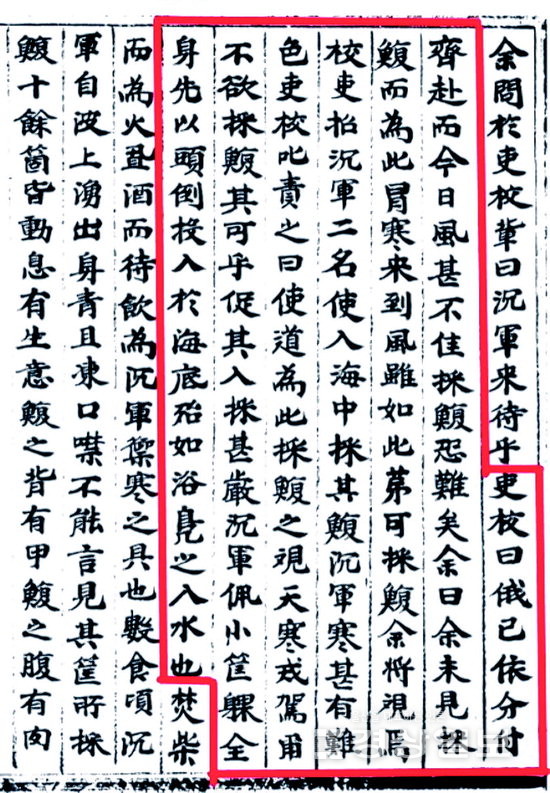 余問於吏校輩曰沉軍来待乎吏校曰俄已依分付
齊赴而今日風甚不佳採鰒恐難矣余曰余未見採
鰒而為此冒寒来到風雖如此苐可採鰒余将視焉
校吏招沉軍二名使入海中採其鰒沉軍寒甚有難
色吏校叱責之曰使道為此採鰒之覌天寒戎駕
不欲採鰒其可乎促其入採甚嚴沉軍佩小筐躶全
身先以頭倒投入於海底殆如浴鳧之入水也焚柴
而為火置酒而待飲為沉軍禦寒之具也數食頃沉
軍自波上湧出身青且凍口噤不能言見其筐所採
鰒十餘箇皆動息有生意鰒之背有甲鰒之腹有肉